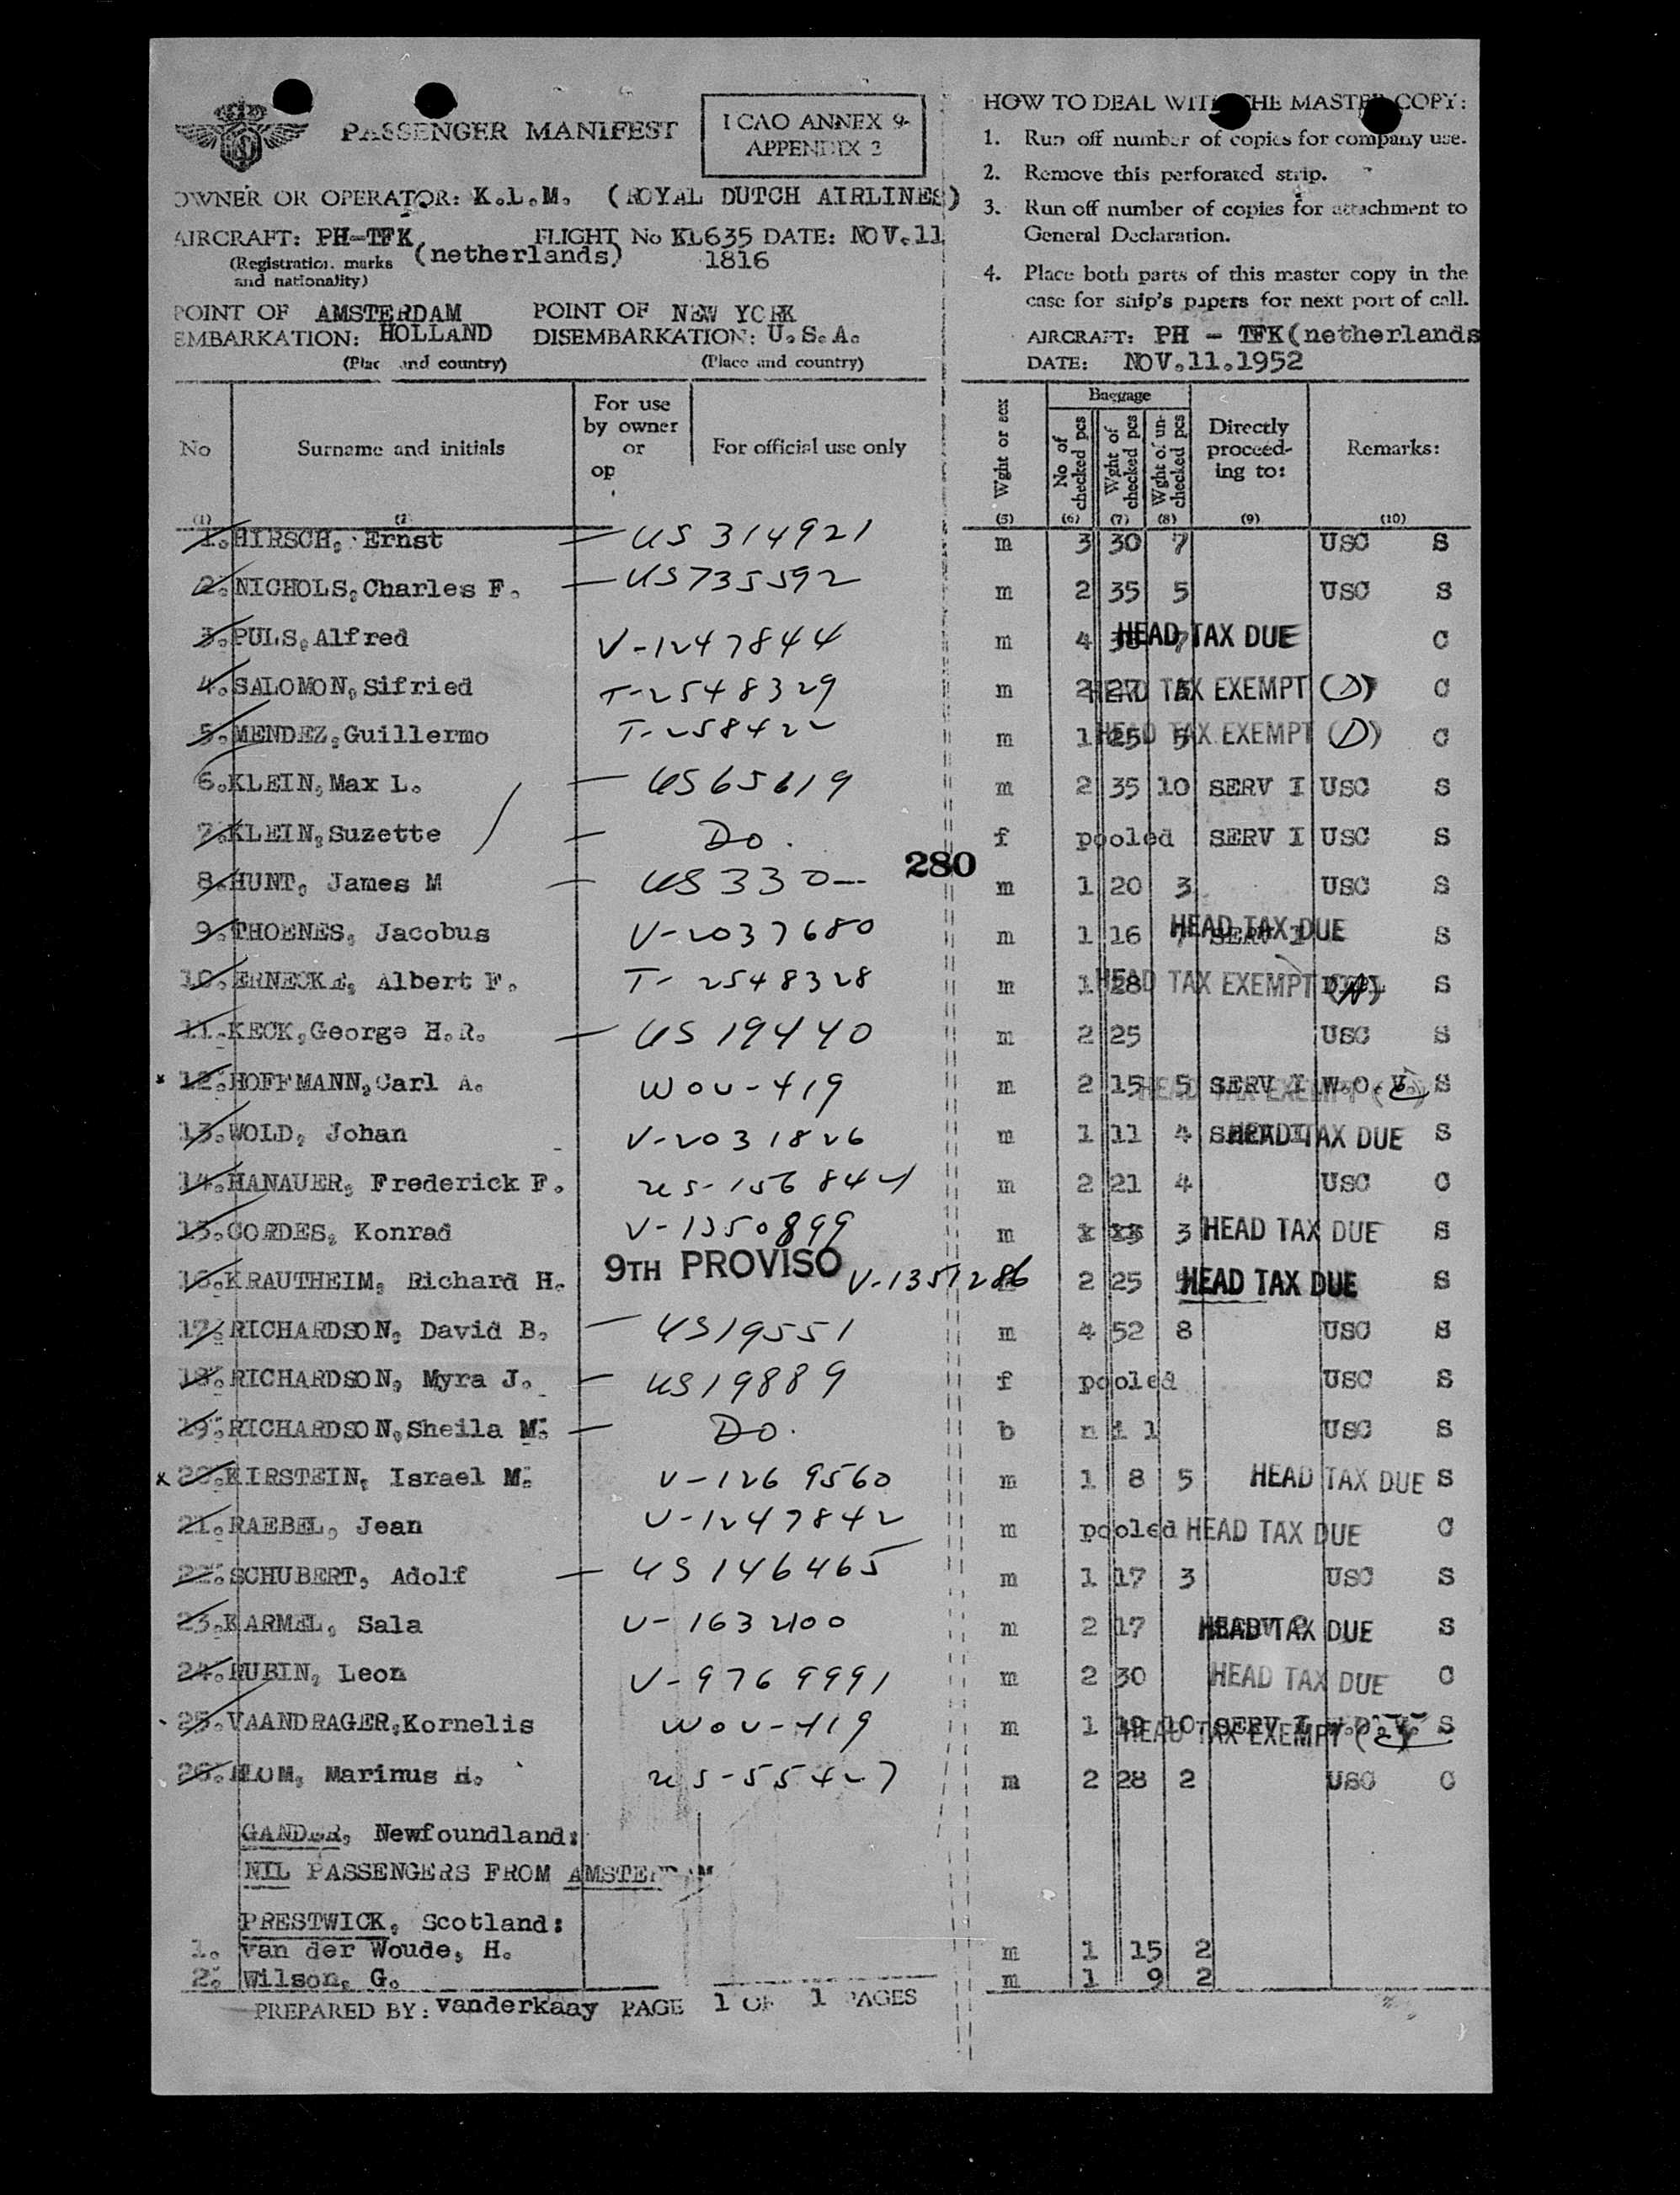 PASSENGER MANIFEST
ICAO ANNEX 9-
APPENDIX 3
OWNER OR OPERATOR: K.L.M. (ROYAL DUTCH AIRLINES)
AIRCRAFT: PH-TFK (netherlands) FLIGHT No KL635 DATE: NOV.11
(Registration marks and nationality) 1816
POINT OF EMBARKATION: AMSTERDAM HOLLAND POINT OF DISEMBARKATION: NEW YORK U.S.A.
(Place and country) (Place and country)
HOW TO DEAL WITH THE MASTER COPY:
1. Run off number of copies for company use.
2. Remove this perforated strip.
3. Run off number of copies for attachment to
General Declaration.
4. Place both parts of this master copy in the
case for ship's papers for next port of call.
AIRCRAFT: PH - TFK(netherlands
DATE: NOV.11.1952
No Surname and initials For use by owner or op For official use only Wght or sex Baggage No of checked pcs Wght of checked pcs Wght of un-checked pcs Directly proceed-ing to: Remarks:
(1) (2 (5) (6) (7) (8) (9) (10)
1. HIRSCH, Ernst — US 314921 m 3 30 7 USC S
2. NICHOLS, Charles F. — US735592 m 2 35 5 USC S
3. PULS, Alfred V-1247844 m 4 HEAD TAX DUE C
4. SALOMON, Sifried T-2548329 m 2 27 HEAD TAX EXEMPT (D) C
5. MENDEZ, Guillermo T-258422 m 1 25 5 HEAD TAX EXEMPT (D) C
6. KLEIN, Max L. — US65619 m 2 35 10 SERV I USC S
7. KLEIN, Suzette — Do. f pooled SERV I USC S
8. HUNT, James M — US330— m 1 20 3 USC S
280
9. THOENES, Jacobus V-2037680 m 1 16 7 SERV I HEAD TAX DUE S
10. ERNECKE, Albert F. T-2548328 m 1 28 HEAD TAX EXEMPT (A) S
11. KECK, George H.R. — US 19440 m 2 25 USC S
x 12. HOFFMANN, Carl A. WOU-419 m 2 15 5 SERV I W.O.V. HEAD TAX EXEMPT S
13. WOLD, Johan V-2031826 m 1 11 4 SERV I HEAD TAX DUE S
14. HANAUER, Frederick F. US-156844 m 2 21 4 USC C
15. CORDES, Konrad V-1350899 m 3 HEAD TAX DUE S
9TH PROVISO
16. KRAUTHEIM, Richard H. V-1351286 2 25 HEAD TAX DUE S
17. RICHARDSON, David B. — US19551 m 4 52 8 USC S
18. RICHARDSON, Myra J. — US19889 f pooled USC S
19. RICHARDSON, Sheila M. — Do. b nil USC S
x 20. KIRSTEIN, Israel M. V-1269560 m 1 8 5 HEAD TAX DUE S
21. RAEBEL, Jean V-1247842 m pooled HEAD TAX DUE C
22. SCHUBERT, Adolf — US146465 m 1 17 3 USC S
23. KARMEL, Sala V-1632100 m 2 17 HEAD TAX DUE S
24. RUBIN, Leon V-9769991 m 2 30 HEAD TAX DUE C
25. VAANDRAGER, Kornelis WOU-419 m 1 19 10 SERV I HEAD TAX EXEMPT S
26. BLOM, Marinus H. US-55427 m 2 28 2 USC C
GANDER, Newfoundland:
NIL PASSENGERS FROM AMSTERDAM
PRESTWICK, Scotland:
1. van der Woude, H. m 1 15 2
2. Wilson, G. m 1 9 2
PREPARED BY: vanderkaay PAGE 1 OF 1 PAGES